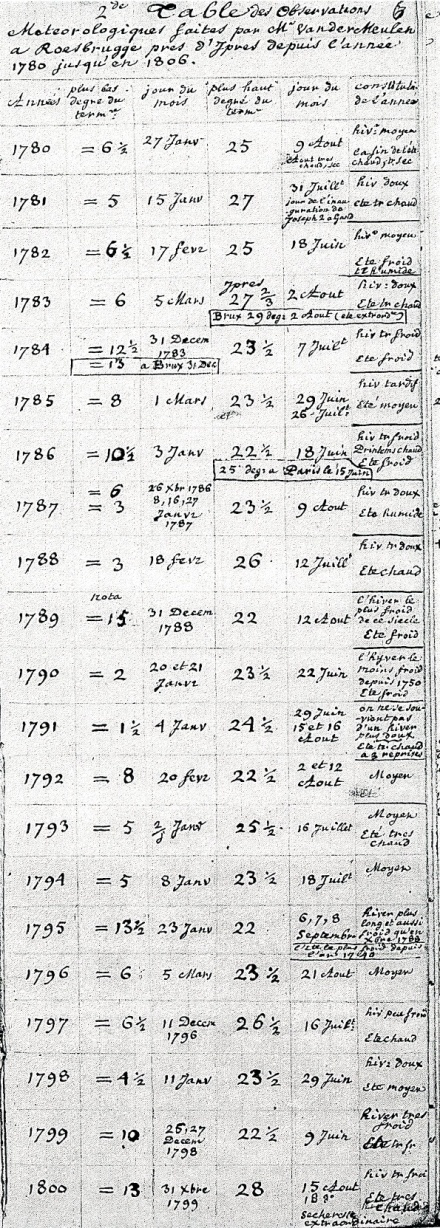 2de Table des Observations
Meteorologiques faites par Mr VanderMeulen
a Roesbrugge pres d'Ypres depuis l'année
1780 jusqu'en 1806.
Années plus bas degré du termre jour du mois plus haut degré du termre jour du mois constitution de l'année
1780 = 6 ½ 27 Janv 25 9 Aout hivr moyen
Aout tres chaud, sec la fin de l'été chaud, tr sec
1781 = 5 15 Janv 27 31 Juillt hiv doux
jour de l'inauguration de Joseph 2 a Gand ete tr chaud
1782 = 6½ 17 fevr 25 18 Juin hivr moyen
Ete froid et humide
1783 = 6 5 Mars Ypres 27 2/3 2 Aout hiv: doux
Ete tr chaud
Brux 29 deg: 2 Aout (ete extrordre)
1784 = 12½ 31 Decem 1783 23 ½ 7 Juilt hiv tr froid
= 13 a Brux 31 Dec Ete froid
1785 = 8 1 Mars 23 ½ 29 Juin 26 Juilt hiv tardif
Ete moyen
1786 = 10½ 3 Janv 22 ½ 18 Juin hiv tr froid
Printems chaud
Ete froid
25 deg: a Paris le 15 Juin
1787 = 6 26 Xbr 1786
= 3 8, 16, 27 Janvr 1787 23 ½ 9 Aout hiv tr doux
Ete humide
1788 = 3 18 fevr 26 12 Juill hiv tr doux
Ete chaud
nota
1789 = 15 31 Decem 1788 22 12 Aout l'hiver le plus froid de ce siecle
Ete froid
1790 = 2 20 et 21 Janvr 23 ½ 22 Juin l'hyver le moins froid depuis 1750
Ete froid
1791 = 1½ 4 Janv 24 ½ 29 Juin 15 et 16 Aout on ne se souvient pas d'un hiver plus doux
Ete tr: chaud a 3 reprises
1792 = 8 20 fevr 22 ½ 2 et 12 Aout Moyen
1793 = 5 Janv 25 ½ 16 Juillet Moyen
Eté tres chaud
1794 = 5 8 Janv 23 ½ 18 Juilt Moyen
1795 = 13½ 23 Janv 22 6, 7, 8 Septembr hiver plus long et aussi froid qu'en Xbre 1788
l'Ete le plus froid depuis l'an 1740
1796 = 6 5 Mars 23 ½ 21 Aout Moyen
1797 = 6½ 11 Decem 1796 26 ½ 16 Juilt hiv peu froid
Ete chaud
1798 = 4½ 11 Janv 23 ½ 29 Juin hiv: doux
Ete moyen
1799 = 10 26, 27 Decem 1798 22 ½ 9 Juin hiver tres froid
Ete tr fr
1800 = 13 31 Xbre 1799 28 15 Aout hiv tr froi
Ete tres chaud
secheresse extraordinaire